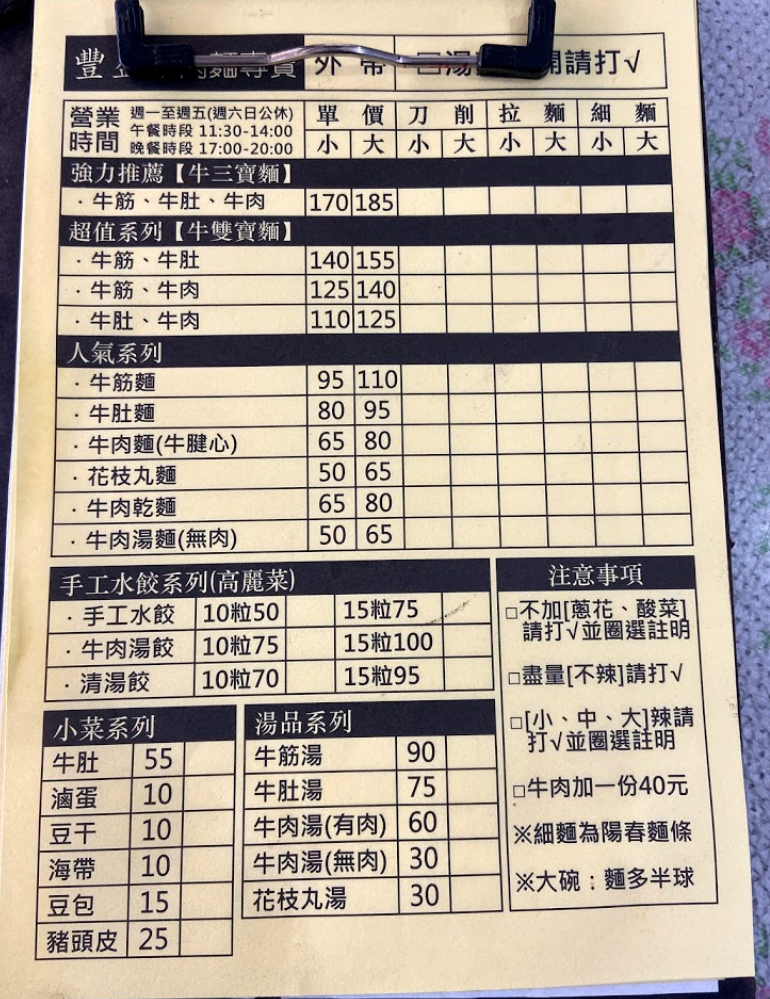 豐 肉麵專賣 外帶 □湯 開請打√
營業時間 週一至週五(週六日公休) 單價 刀削 拉麵 細麵
午餐時段 11:30-14:00
晚餐時段 17:00-20:00 小 大 小 大 小 大 小 大
強力推薦【牛三寶麵】
．牛筋、牛肚、牛肉 170 185
超值系列【牛雙寶麵】
．牛筋、牛肚 140 155
．牛筋、牛肉 125 140
．牛肚、牛肉 110 125
人氣系列
．牛筋麵 95 110
．牛肚麵 80 95
．牛肉麵(牛腱心) 65 80
．花枝丸麵 50 65
．牛肉乾麵 65 80
．牛肉湯麵(無肉) 50 65
手工水餃系列(高麗菜)
．手工水餃 10粒50 15粒75
．牛肉湯餃 10粒75 15粒100
．清湯餃 10粒70 15粒95
小菜系列
牛肚 55
滷蛋 10
豆干 10
海帶 10
豆包 15
豬頭皮 25
湯品系列
牛筋湯 90
牛肚湯 75
牛肉湯(有肉) 60
牛肉湯(無肉) 30
花枝丸湯 30
注意事項
□不加[蔥花、酸菜]
請打√並圈選註明
□盡量[不辣]請打√
□[小、中、大]辣請
打√並圈選註明
□牛肉加一份40元
※細麵為陽春麵條
※大碗：麵多半球